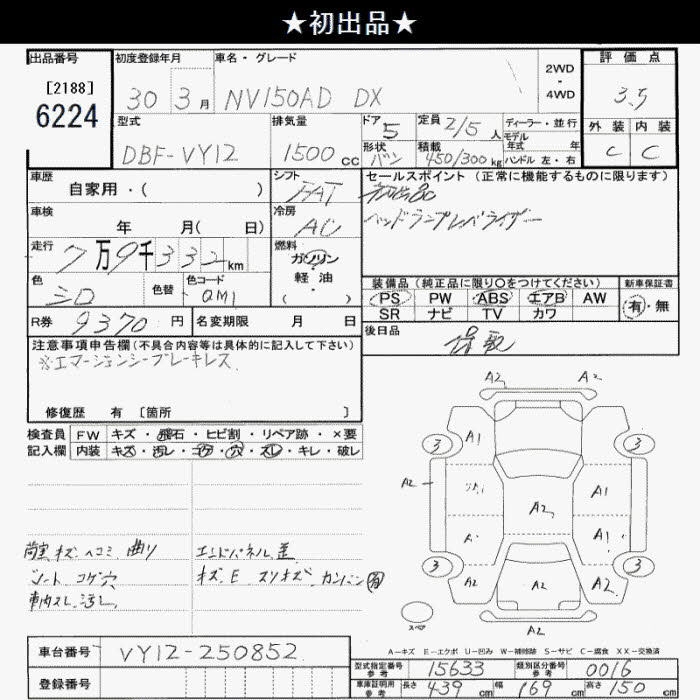 ★初出品★
出品番号
[2188]
6224
初度登録年月
30年3月
車名・グレード
NV150AD DX
2WD
・
4WD
評価点
3.5
外装 内装
C C
型式
DBF-VY12
排気量
1500cc
ドア 5
形状 バン
定員 2/5人
積載 450/300kg
ディーラー・並行
モデル
年式 年
ハンドル 左・右
車歴
自家用・( )
シフト
FAT
セールスポイント (正常に機能するものに限ります)
ヘッドランプレベライザー
車検
年 月( 日)
冷房
AC
走行
7万9千332km
燃料
ガソリン
・
軽油
( )
色
シロ
色替
色コード
QM1
装備品 (純正品に限り○をつけてください)
PS PW ABS エアB AW
SR ナビ TV カワ
新車保証書
有・無
R券 9370円
名変期限 月 日
後日品
注意事項申告欄(不具合内容等は具体的に記入して下さい)
※エマージェンシーブレーキレス
修復歴 有 [箇所 ]
検査員
記入欄
FW キズ・飛石・ヒビ割・リペア跡・×要
内装 キズ・汚レ・コゲ・穴・スレ・キレ・破レ
荷室キズ ヘコミ 曲リ
シート コゲ穴
車内スレ 汚レ
エンドパネル
キズ E スリキズ カンバン 有
A2 A2
3 A1 3
A2 A1
A2
A1
3 A2 A2 A2 3
スペア
A2
A-キズ E-エクボ U-凹み W-補修跡 S-サビ C-腐食 XX-交換済
車台番号 VY12-250852
登録番号
型式指定番号
参考
15633
類別区分番号
参考
0016
車庫証明用
参考
長さ 439cm 幅 169cm 高さ 150cm